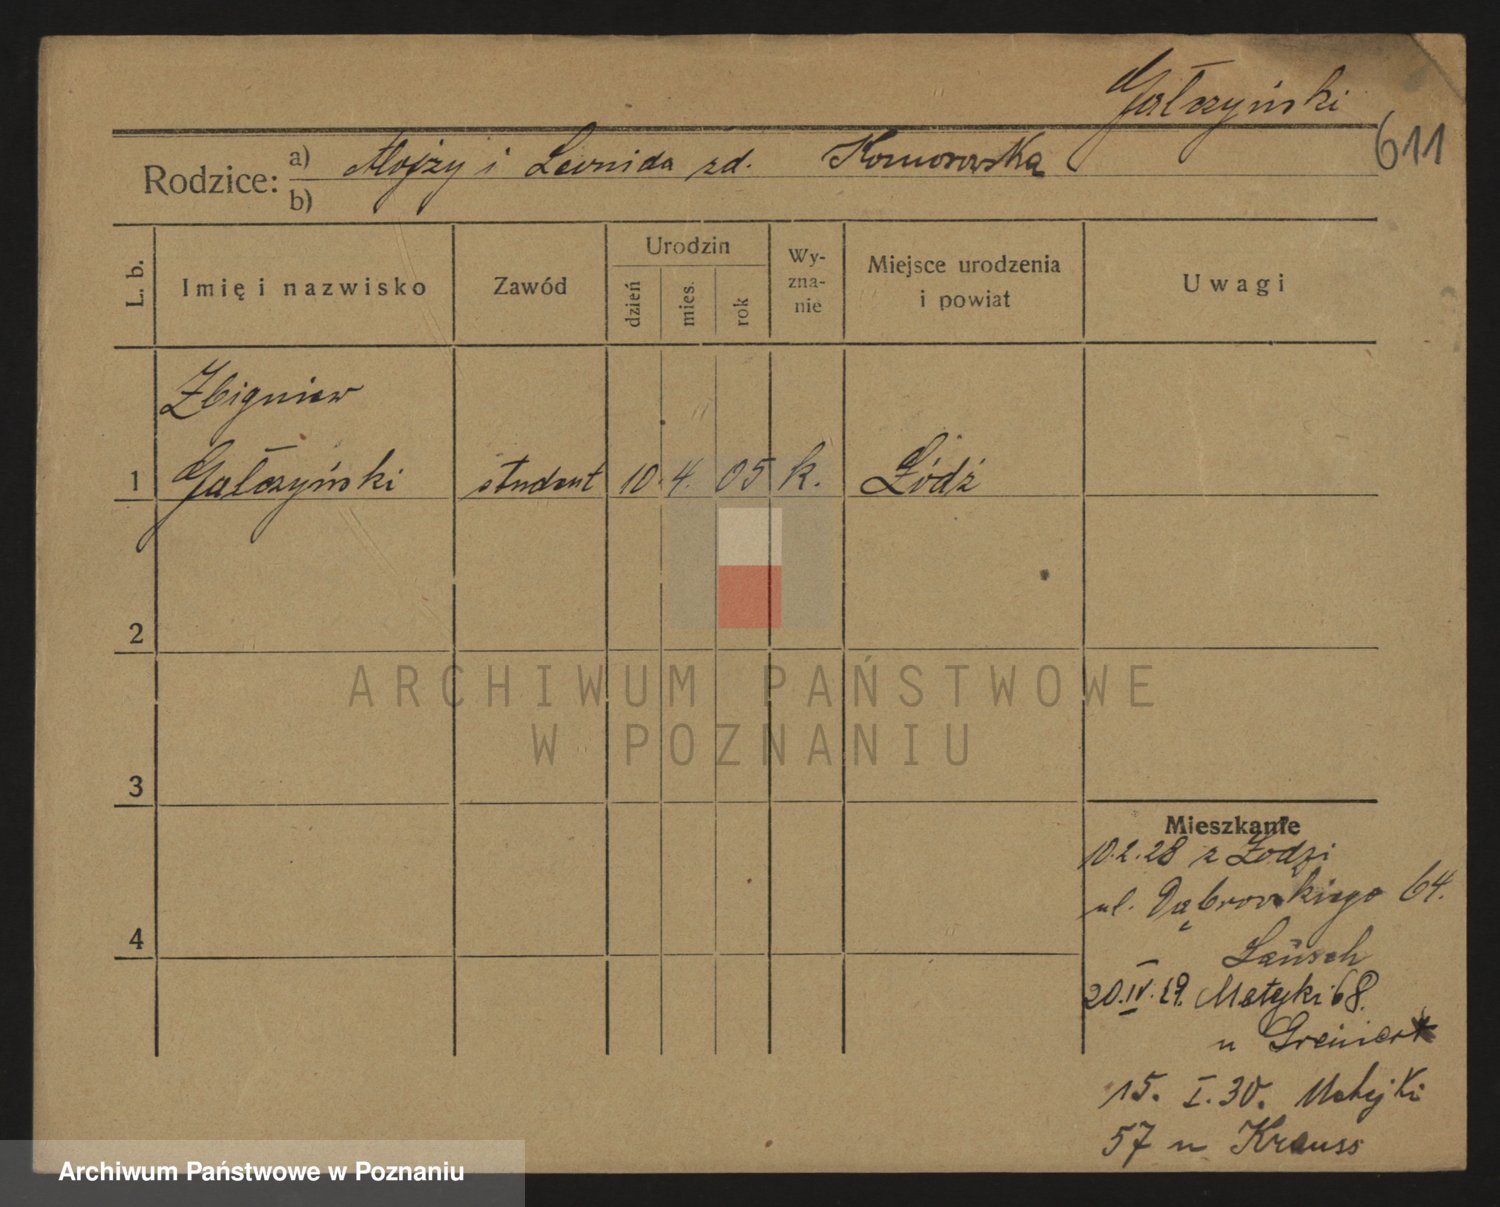 Gałczyński
611
Rodzice: a) Alojzy i Leonida zd. Komorowska
b)
L. b.
Imię i nazwisko
Zawód
Urodzin
dzień
mies.
rok
Wy-
zna-
nie
Miejsce urodzenia
i powiat
Uwagi
Zbigniew
1 Gałczyński student 10. 4. 05 k. Łódź
2
ARCHIWUM PAŃSTWOWE
W POZNANIU
3
Mieszkanie
10.2.28 z Łodzi
ul. Dąbrowskiego 64.
4
20.IV.29. Matejki 68.
u
15. I. 30. Matejki
57 u Krauss
Archiwum Państwowe w Poznaniu